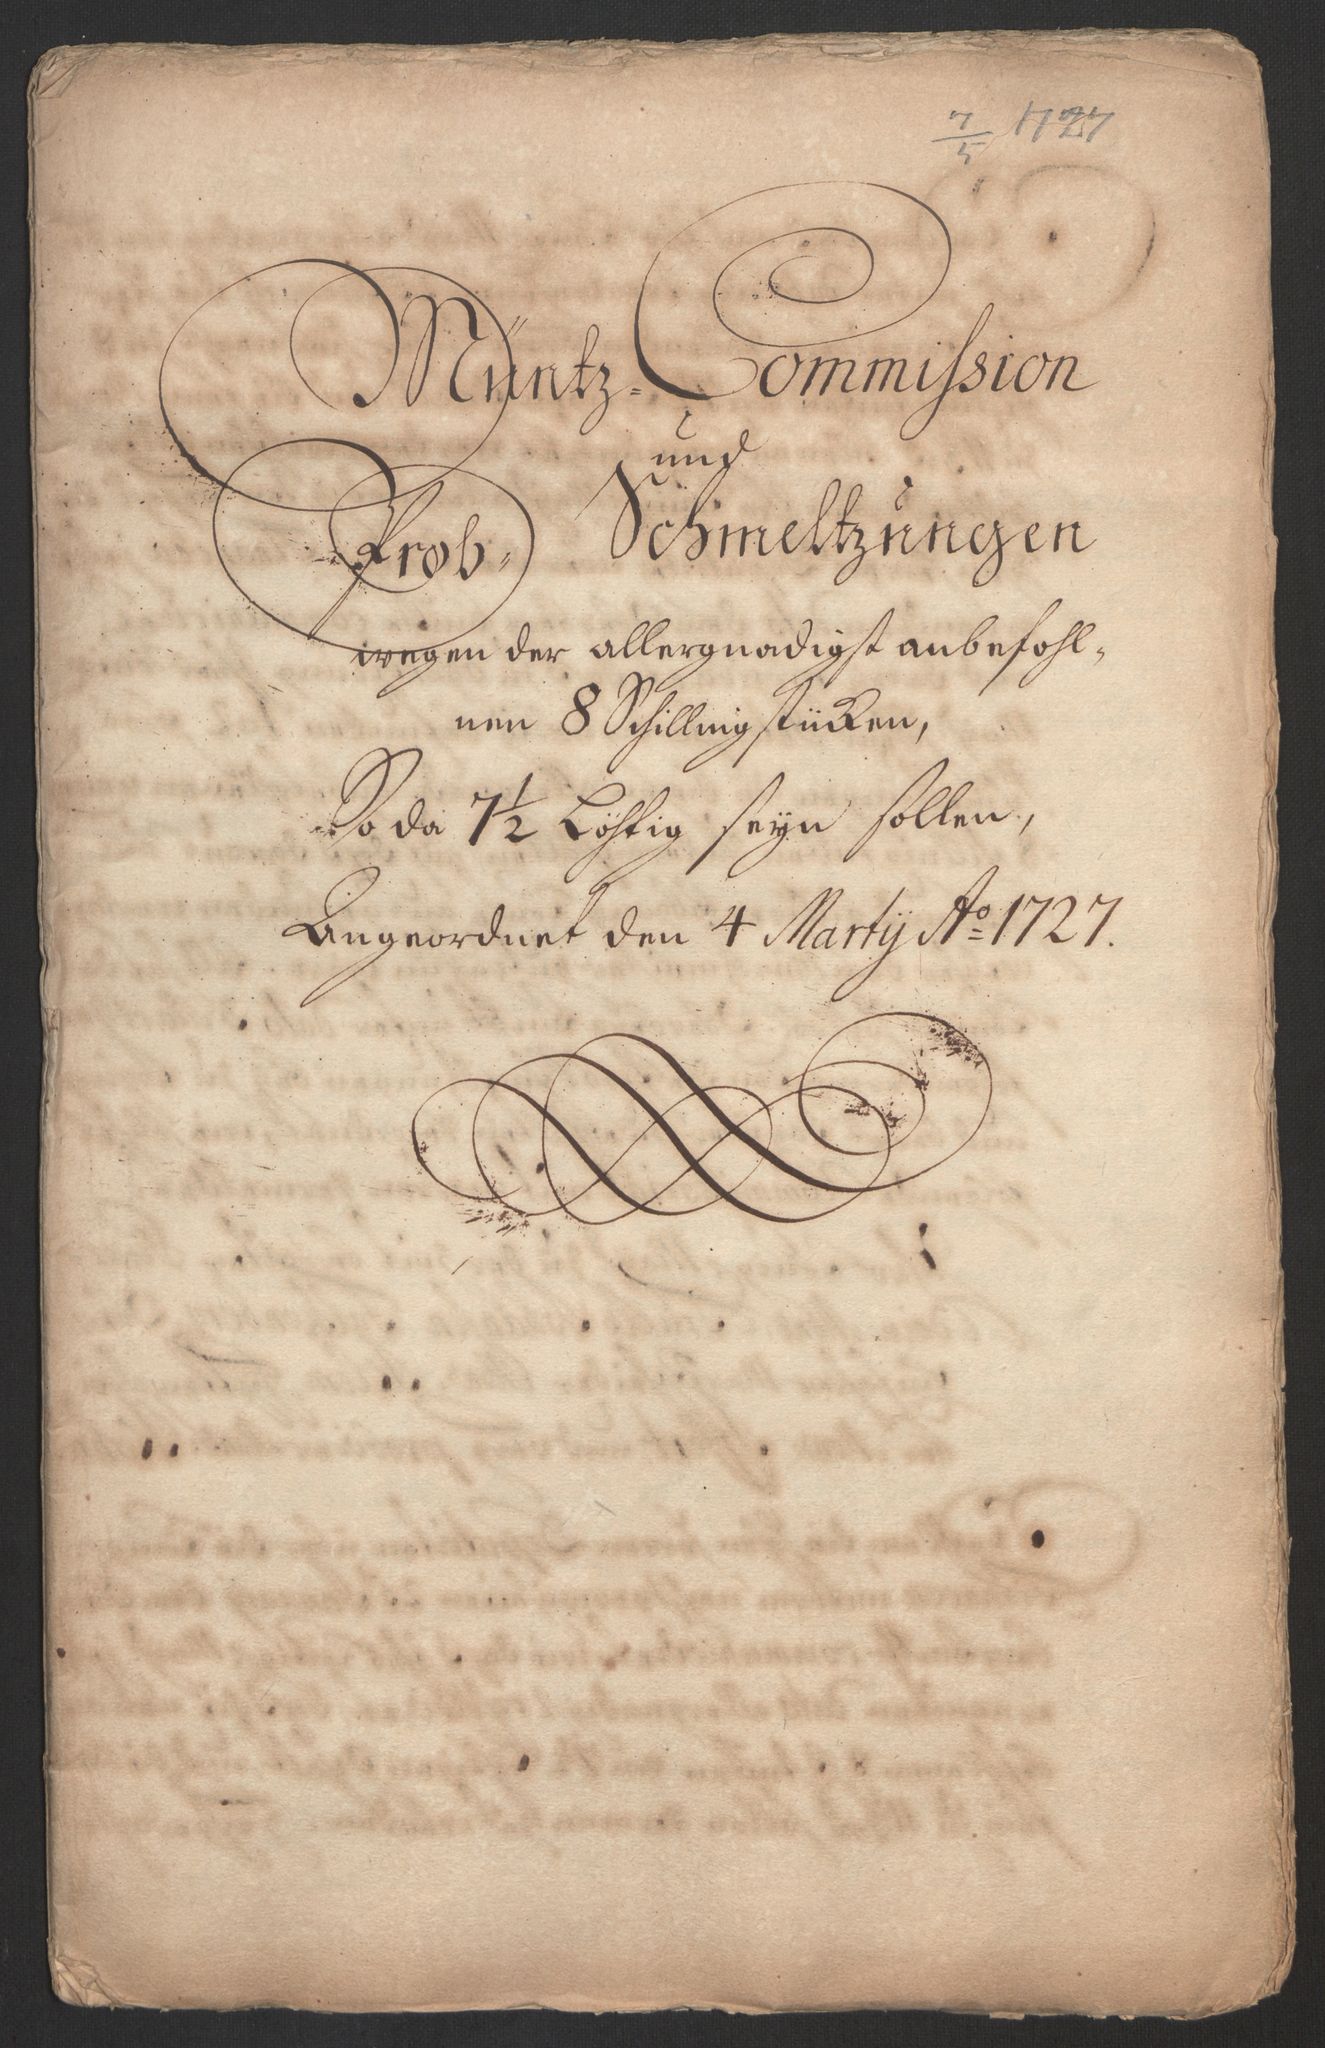 7/5 1727
Müntz-Commission
und
Prob- Schmeltzungen
wegen der allergnädigst anbefohl-
nen 8 Schillingstücken,
So da 7 1/2 Löhtig seyn sollen,
Angeordnet den 4 Martij Ao 1727.